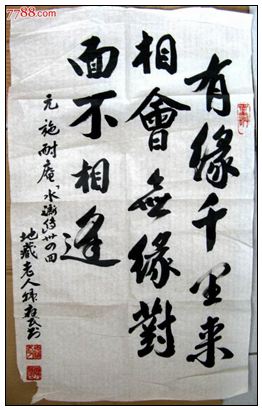 7788.com
有緣千里来
相會無緣對
面不相逢
元 施耐庵「水滸傳卅四回
地藏老人